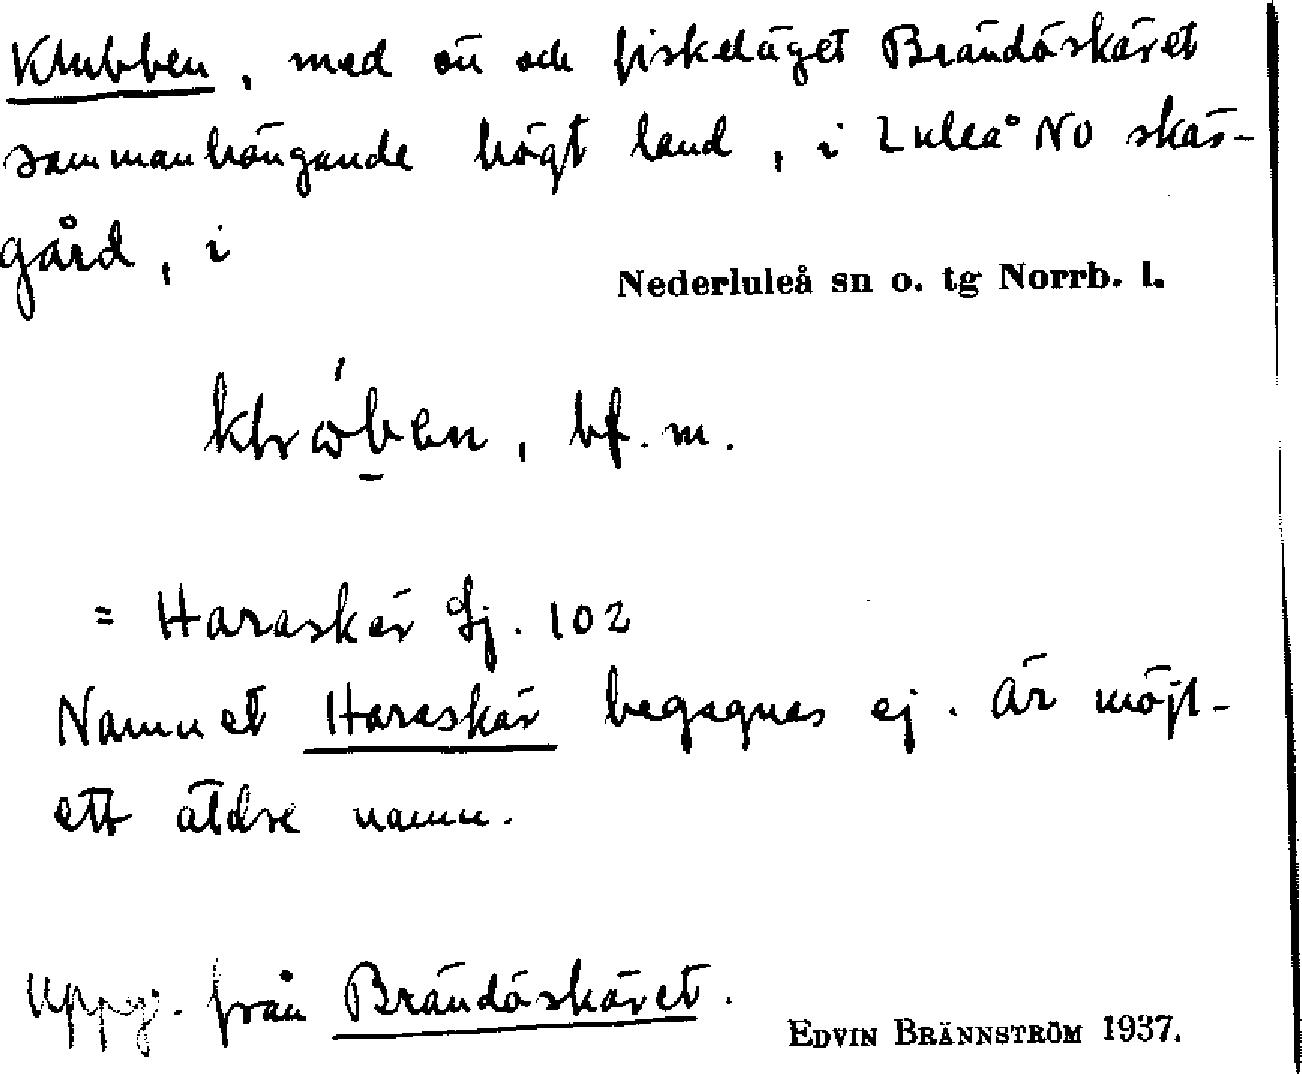 Klubben, med ön och fiskeläget Brändöskäret
sammanhängande högt land, i Luleå NO skär-
gård, i
Nederluleå sn o. tg Norrb. l.
bf. m.
= Haraskär Gj. 102
Namnet Haraskär begagnas ej. Är möjl-
ett äldre namn.
Uppg. från Brändöskäret.
EDVIN BRÄNNSTRÖM 1937.